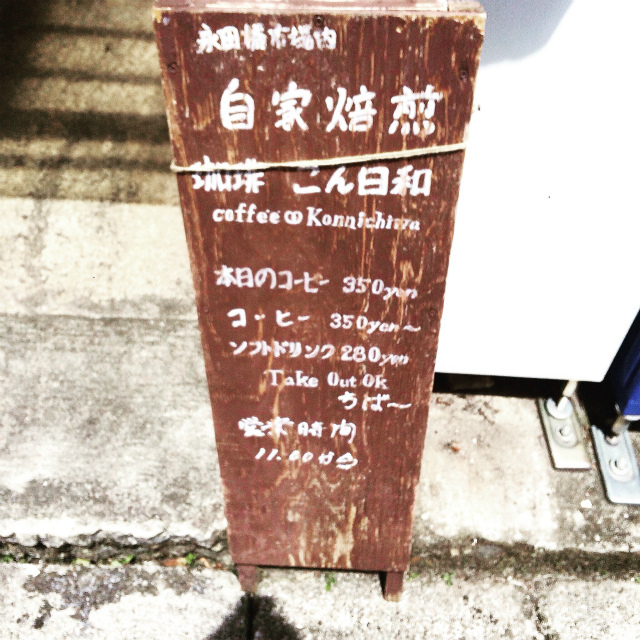 自家焙煎
珈琲 こん日和
coffee ∞ Konnichiwa
本日のコーヒー 350yen
コーヒー 350yen〜
ソフトドリンク 280yen
Take Out OK
営業時間